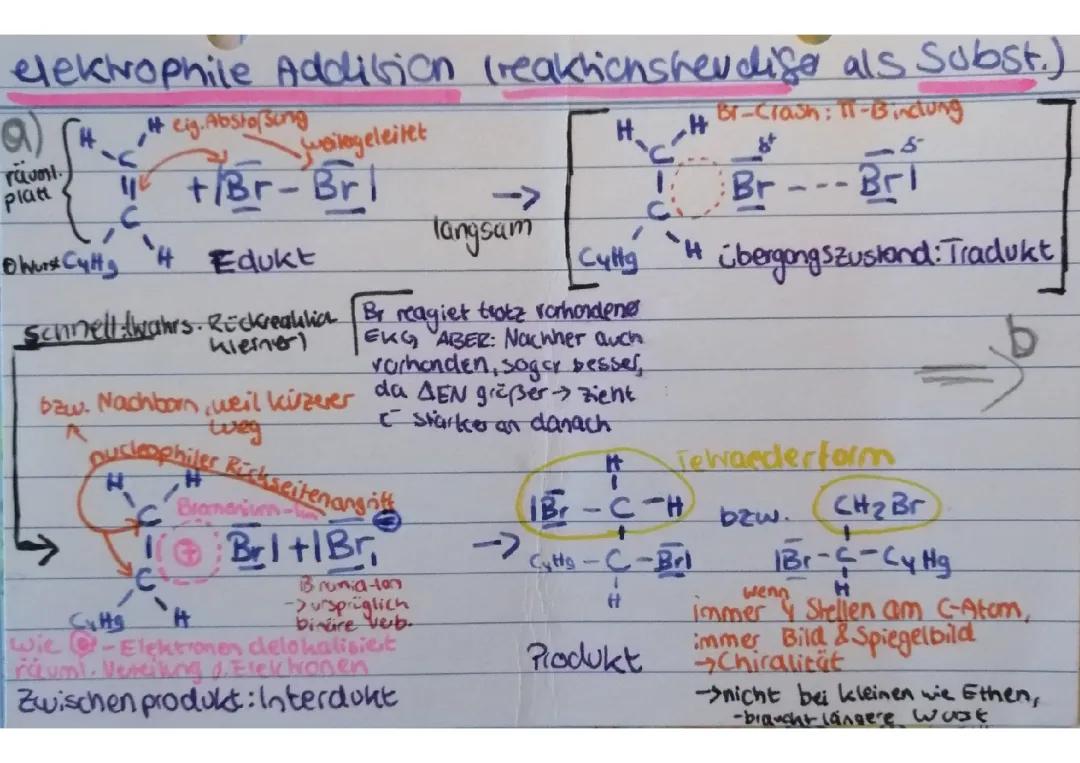 elektrophile Addition (reaktionsfreudiger als Subst.)
a)
räuml. platt
H H
C
||
C
C4H9 H
eig. Abstoßung
weitergeleitet
+ |Br - Br|
Edukt
→
langsam
Br-Crash: π-Bindung
H H
C
|
C
C4H9 H
δ+ δ-
Br --- Br|
Übergangszustand: Tradukt
schnell
Rückreaktion
kleiner)
Br reagiet trotz vorhandener
EKG ABER: Nachher auch
vorhanden, sogar besser,
da ΔEN größer → zieht
stärker an danach
b
bzw. Nachbarn, weil kürzerer
Weg
nucleophiler Rückseitenangriff
H H
C
|
C
C4H9 H
+
Br| + |Br|
-
→ ursprüglich
binäre Verb.
wie - Elektronen delokalisiert
räuml. Verteilung d. Elektronen
Zwischenprodukt: Interdukt
→
Tetraederform
H
|Br - C - H
C4H9 - C - Br|
H
Produkt
bzw.
CH2Br
|Br - C - C4H9
H
wenn
immer 4 Stellen am C-Atom,
immer Bild & Spiegelbild
→ Chiralität
→ nicht bei kleinen wie Ethen,
- braucht längere Wurst